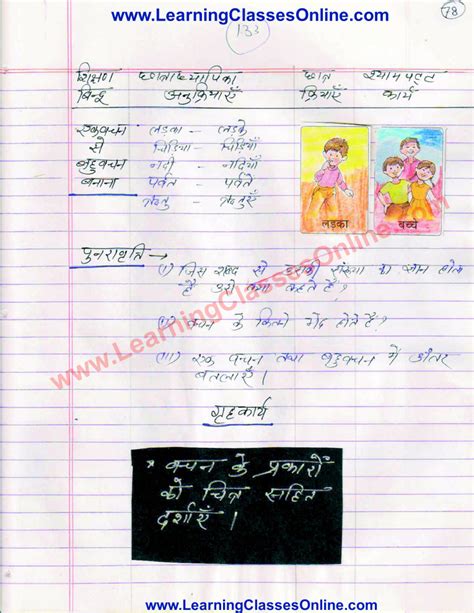 www.LearningClassesOnline.com
78
133
शिक्षण छात्राध्यापिका छात्र श्यामपट्ट
बिन्दू अनुक्रियाएँ क्रियाएँ कार्य
एकवचन लड़का - लड़के
से चिड़िया - चिड़ियाँ
बहुवचन नदी - नदियाँ
बनाना पर्वत - पर्वते
ऋतु - ऋतुएँ
लड़का बच्चे
पुनरावृत्ति →
(i) जिस शब्द से उसकी संख्या का ज्ञान होता
है उसे क्या कहते है?
(ii) वचन के कितने भेद होते है?
(iii) एक वचन तथा बहुवचन में अंतर
बतलाएँ।
www.LearningClassesOnline.com
गृहकार्य
* वचन के प्रकारों
को चित्र सहित
दर्शाएँ।
www.LearningClassesOnline.com